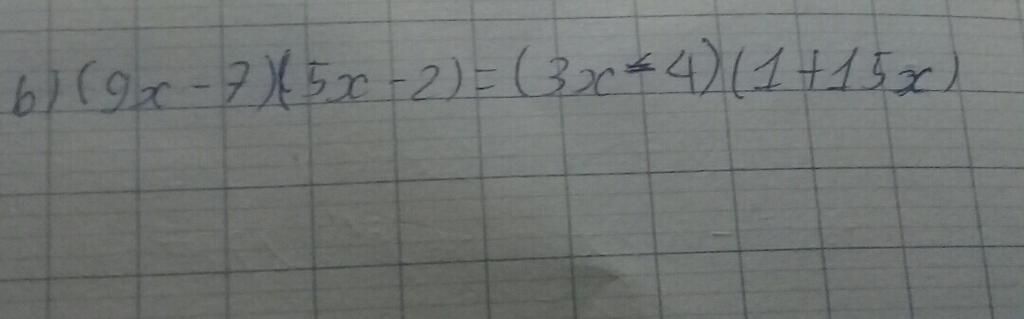 b) (9x-7)(5x-2)=(3x-4)(1+15x)